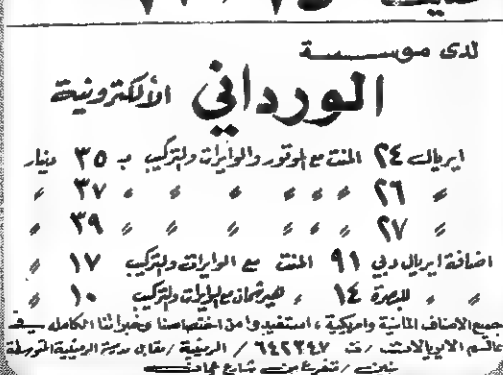 لدى موسسة
الورداني الألكترونية
ايريال ٢٤ المنت مع الموتور والوايرات والتركيب بـ ٣٥ دينار
〃 ٢٦ 〃 〃 〃 〃 〃 ٣٧ 〃
〃 ٢٧ 〃 〃 〃 〃 〃 ٣٩ 〃
اضافة ايريال دبي ٩١ المنت مع الوايرات والتركيب ١٧ 〃
〃 〃 للبصرة ١٤ 〃 مع الوايرات والتركيب ١٠ 〃
جميع الاصناف المانية وامريكية ، استفيدوا من اختصاصنا وخبراتنا الكامله في
عالم الايريالات ٦٤٢٣٤٧ / الرميثية / مقابل مدرسة الرميثية المتوسطة
شارع